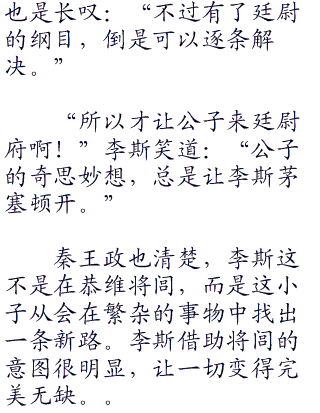 也是长叹：“不过有了廷尉
的纲目，倒是可以逐条解
决。”
“所以才让公子来廷尉
府啊！”李斯笑道：“公子
的奇思妙想，总是让李斯茅
塞顿开。”
秦王政也清楚，李斯这
不是在恭维将闾，而是这小
子从会在繁杂的事物中找出
一条新路。李斯借助将闾的
意图很明显，让一切变得完
美无缺。。